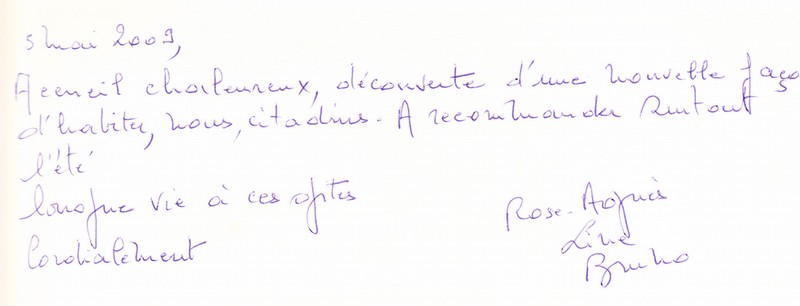 5 mai 2009,
Accueil chaleureux, découverte d'une nouvelle faço
d'habiter, nous, citadins. A recommander surtout
l'été
longue vie à ces gîtes
Cordialement
Rose-Agnès
Line
Bruno